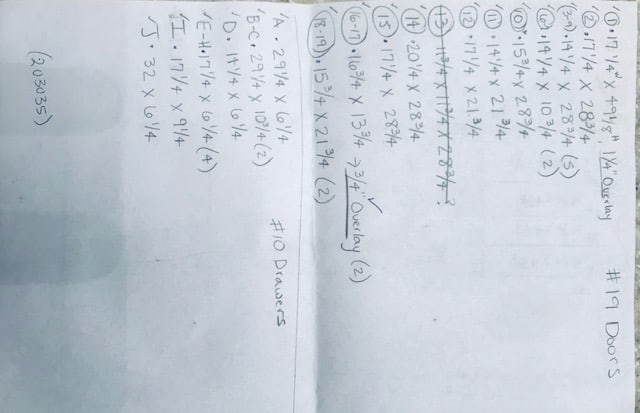 #19 Doors
① • 17 1/4" W x 49 1/8" H, 1 1/4" Overlay
② • 17 1/4 x 28 3/4
(3-7) • 14 1/4 x 28 3/4 (5)
• 14 1/4 x 10 3/4 (2)
⑩ • 15 3/4 x 28 3/4
⑪ • 14 1/4 x 21 3/4
⑫ • 17 1/4 x 21 3/4
⑬ • 13/4 x 13/4 x 28 3/4 ?
⑭ 20 1/4 x 28 3/4
⑮ • 17 1/4 x 28 3/4
(16-17) • 16 3/4 x 13 3/4 → 3/4" Overlay (2)
(18-19) • 15 3/4 x 21 3/4 (2)
#10 Drawers
A • 29 1/4 x 6 1/4
B-C • 29 1/4 x 10 3/4 (2)
D • 14 1/4 x 6 1/4
E-H • 17 1/4 x 6 1/4 (4)
I • 17 1/4 x 9 1/4
J • 32 x 6 1/4
(203035)